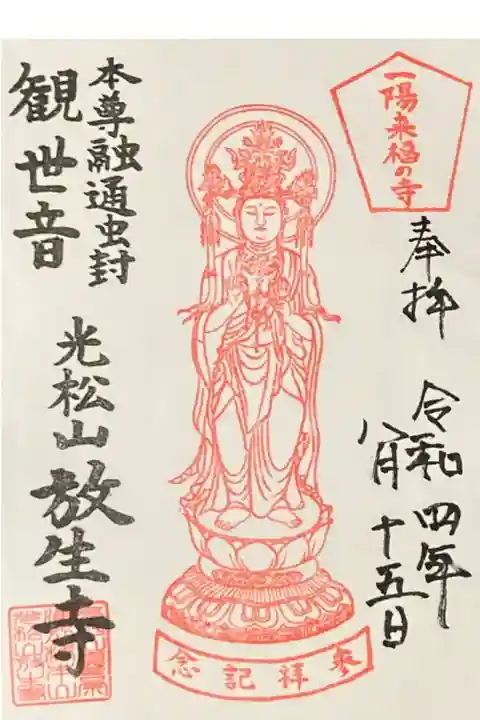 一陽来福の寺
奉拝
令和四年
八月十五日
参拝記念
本尊融通虫封
観世音
光松山放生寺